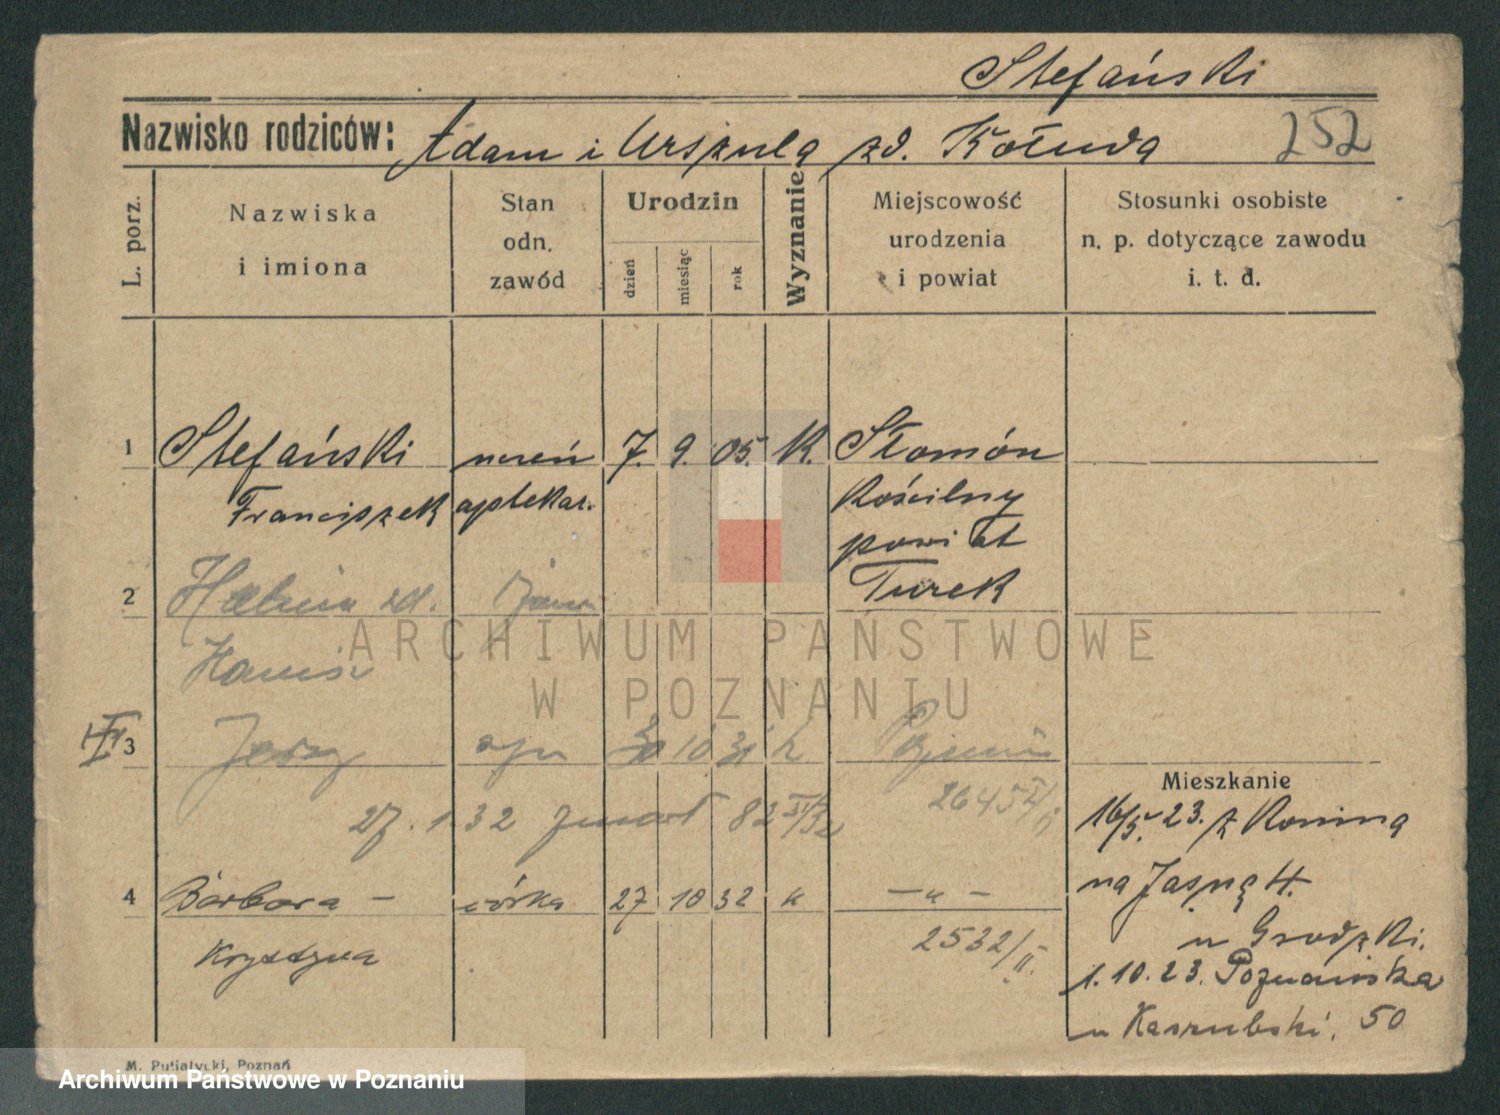 Stefański
Nazwisko rodziców: Adam i Urszula zd. Kołuda 252
L. porz.
Nazwiska i imiona
Stan odn. zawód
Urodzin
dzień
miesiąc
rok
Wyznanie
Miejscowość urodzenia i powiat
Stosunki osobiste n. p. dotyczące zawodu i. t. d.
1 Stefański uczeń 7. 9. 05. K. Słomów
Franciszek aptekar. Kościelny
powiat
2 Halina zd. żona Turek
Kanisz
3 Jerzy syn 30 10 31 k
27.1.32 zmarł 82 XI/32
2645
Mieszkanie
16/5. 23. z Konina
4 Barbara – córka 27 10 32 k – „ –
na Jasną 4.
Krystyna 2532/II.
u Grodzki.
1.10.23. Poznańska
u Kaszubski. 50
M. Putiatycki, Poznań
ARCHIWUM PAŃSTWOWE
W POZNANIU
Archiwum Państwowe w Poznaniu